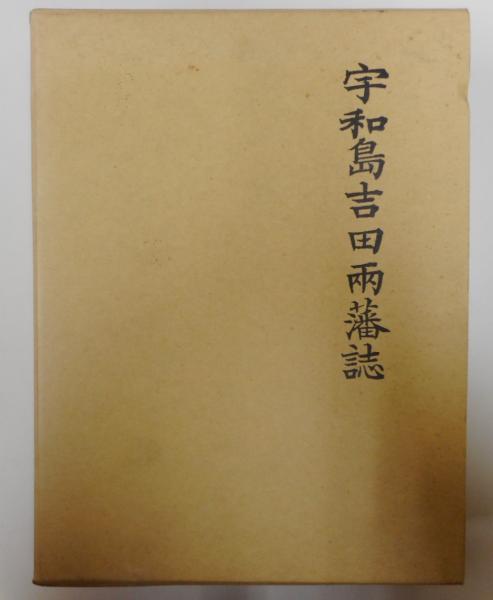 宇和島吉田兩藩誌